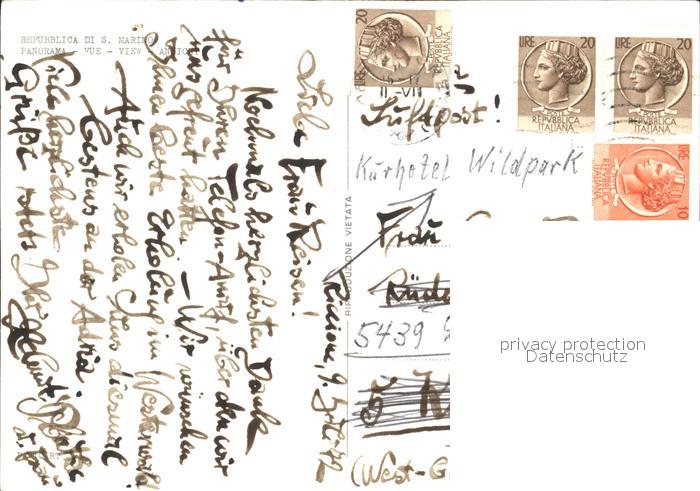 REPUBBLICA DI S. MARINO
PANORAMA - VUE - VIEW - ANSICHT
Riccione, 9. Juli 72
Liebe Frau Reisen!
Nochmals herzlichsten Dank
für Ihren Telefon-Anruf, über den wir
uns gefreut hatten - Wir wünschen
Ihnen beste Erholung im Westerwald
Auch wir erholen uns diesmal
bestens an der Adria.
Viele herzlichste
Grüße stets Ihr
RIPRODUZIONE VIETATA
LIRE 20
REPUBBLICA
ITALIANA
LIRE 20
REPUBBLICA
ITALIANA
LIRE 20
REPUBBLICA
ITALIANA
LIRE 10
REPUBBLICA
ITALIANA
Luftpost!
Kurhotel Wildpark
Frau
Rüde
5439
5 K
(West-G
privacy protection
Datenschutz